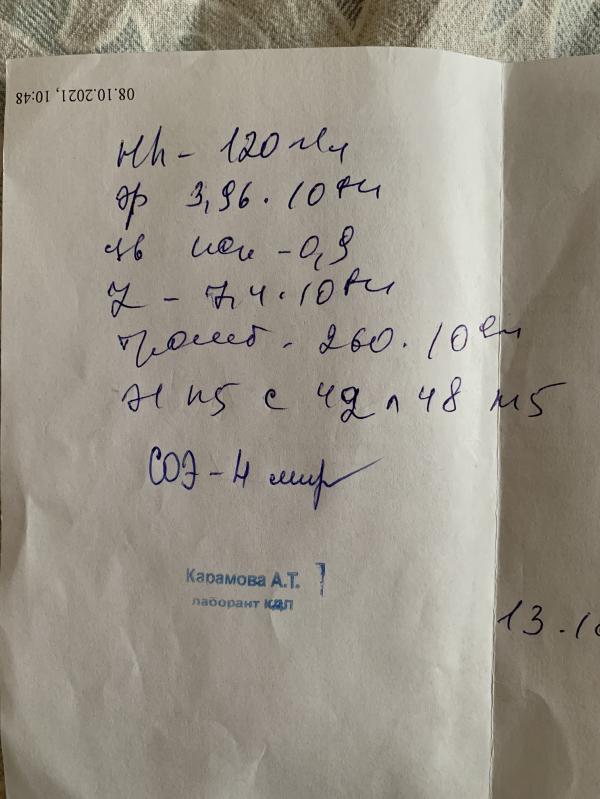 08.10.2021, 10:48
Hb - 120 г/л
Эр 3,96 . 10
цв пок - 0,9
L - 7,4 . 10
тромб - 260 . 10
п5 с 42 л 48 м5
СОЭ - 4 мм/
Карамова А.Т.
лаборант КДЛ
13.10